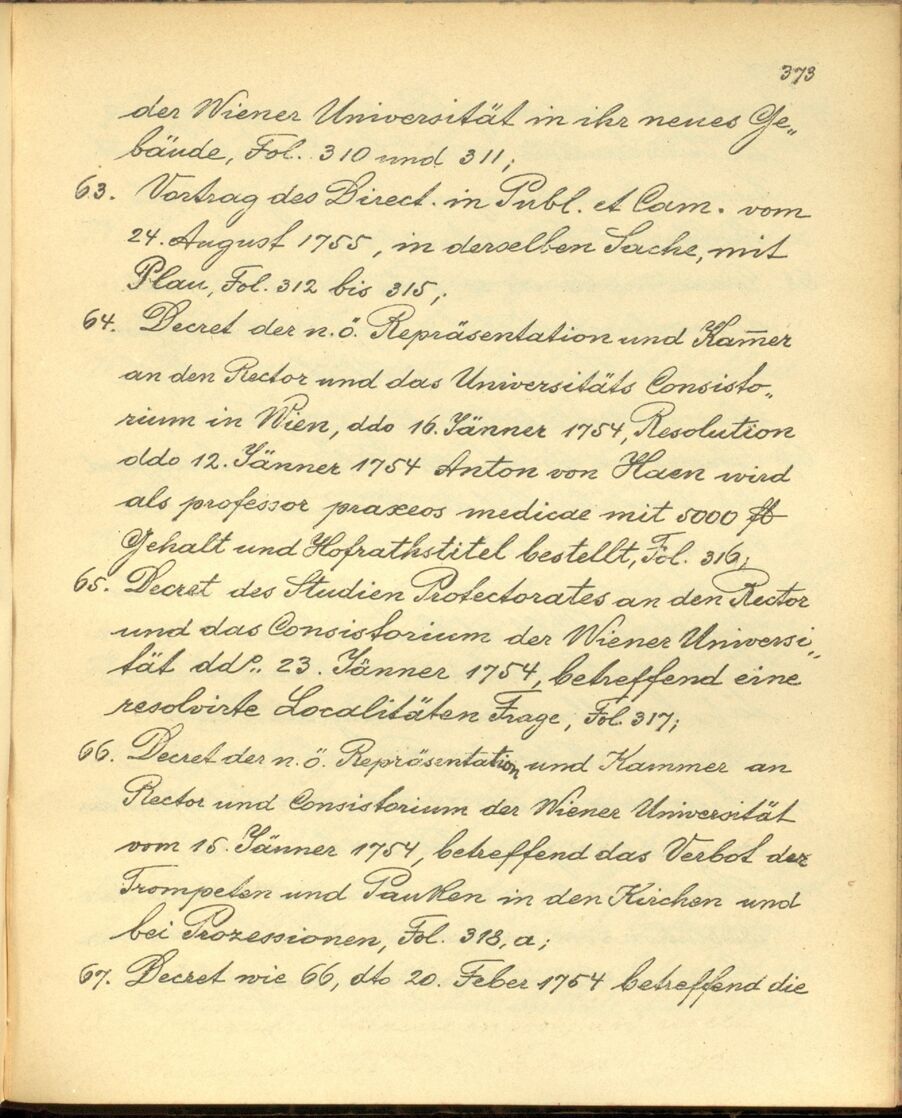 373
der Wiener Universität in ihr neues Ge„
bäude, Fol. 310 und 311;
63. Vortrag des Direct. in Publ. et Cam. vom
24. August 1755, in derselben Sache, mit
Plau, Fol. 312 bis 315;
64. Decret der n. ö. Repräsentation und Kam̅er
an den Rector und das Universitäts Consisto„
rium in Wien, ddo 16. Jänner 1754, Resolution
ddo 12. Jänner 1754 Anton von Haen wird
als professor praxeos medicae mit 5000 fl
Gehalt und Hofrathstitel bestellt, Fol. 316;
65. Decret des Studien Protectorates an den Rector
und das Consistorium der Wiener Universi„
tät ddo. 23. Jänner 1754, betreffend eine
resolvirte Localitäten Frage, Fol. 317;
66. Decret der n. ö. Repräsentation und Kammer an
Rector und Consistorium der Wiener Universität
vom 15. Jänner 1754, betreffend das Verbot der
Trompeten und Pauken in den Kirchen und
bei Prozessionen, Fol. 318, a;
67. Decret wie 66, dto 20. Feber 1754 betreffend die